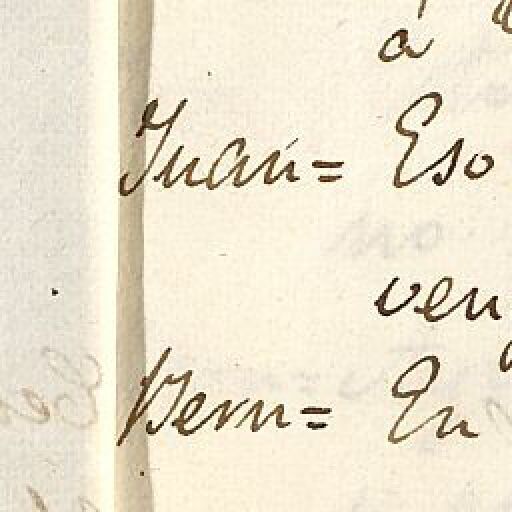 á
Juan= Eso
ven
Bern= En